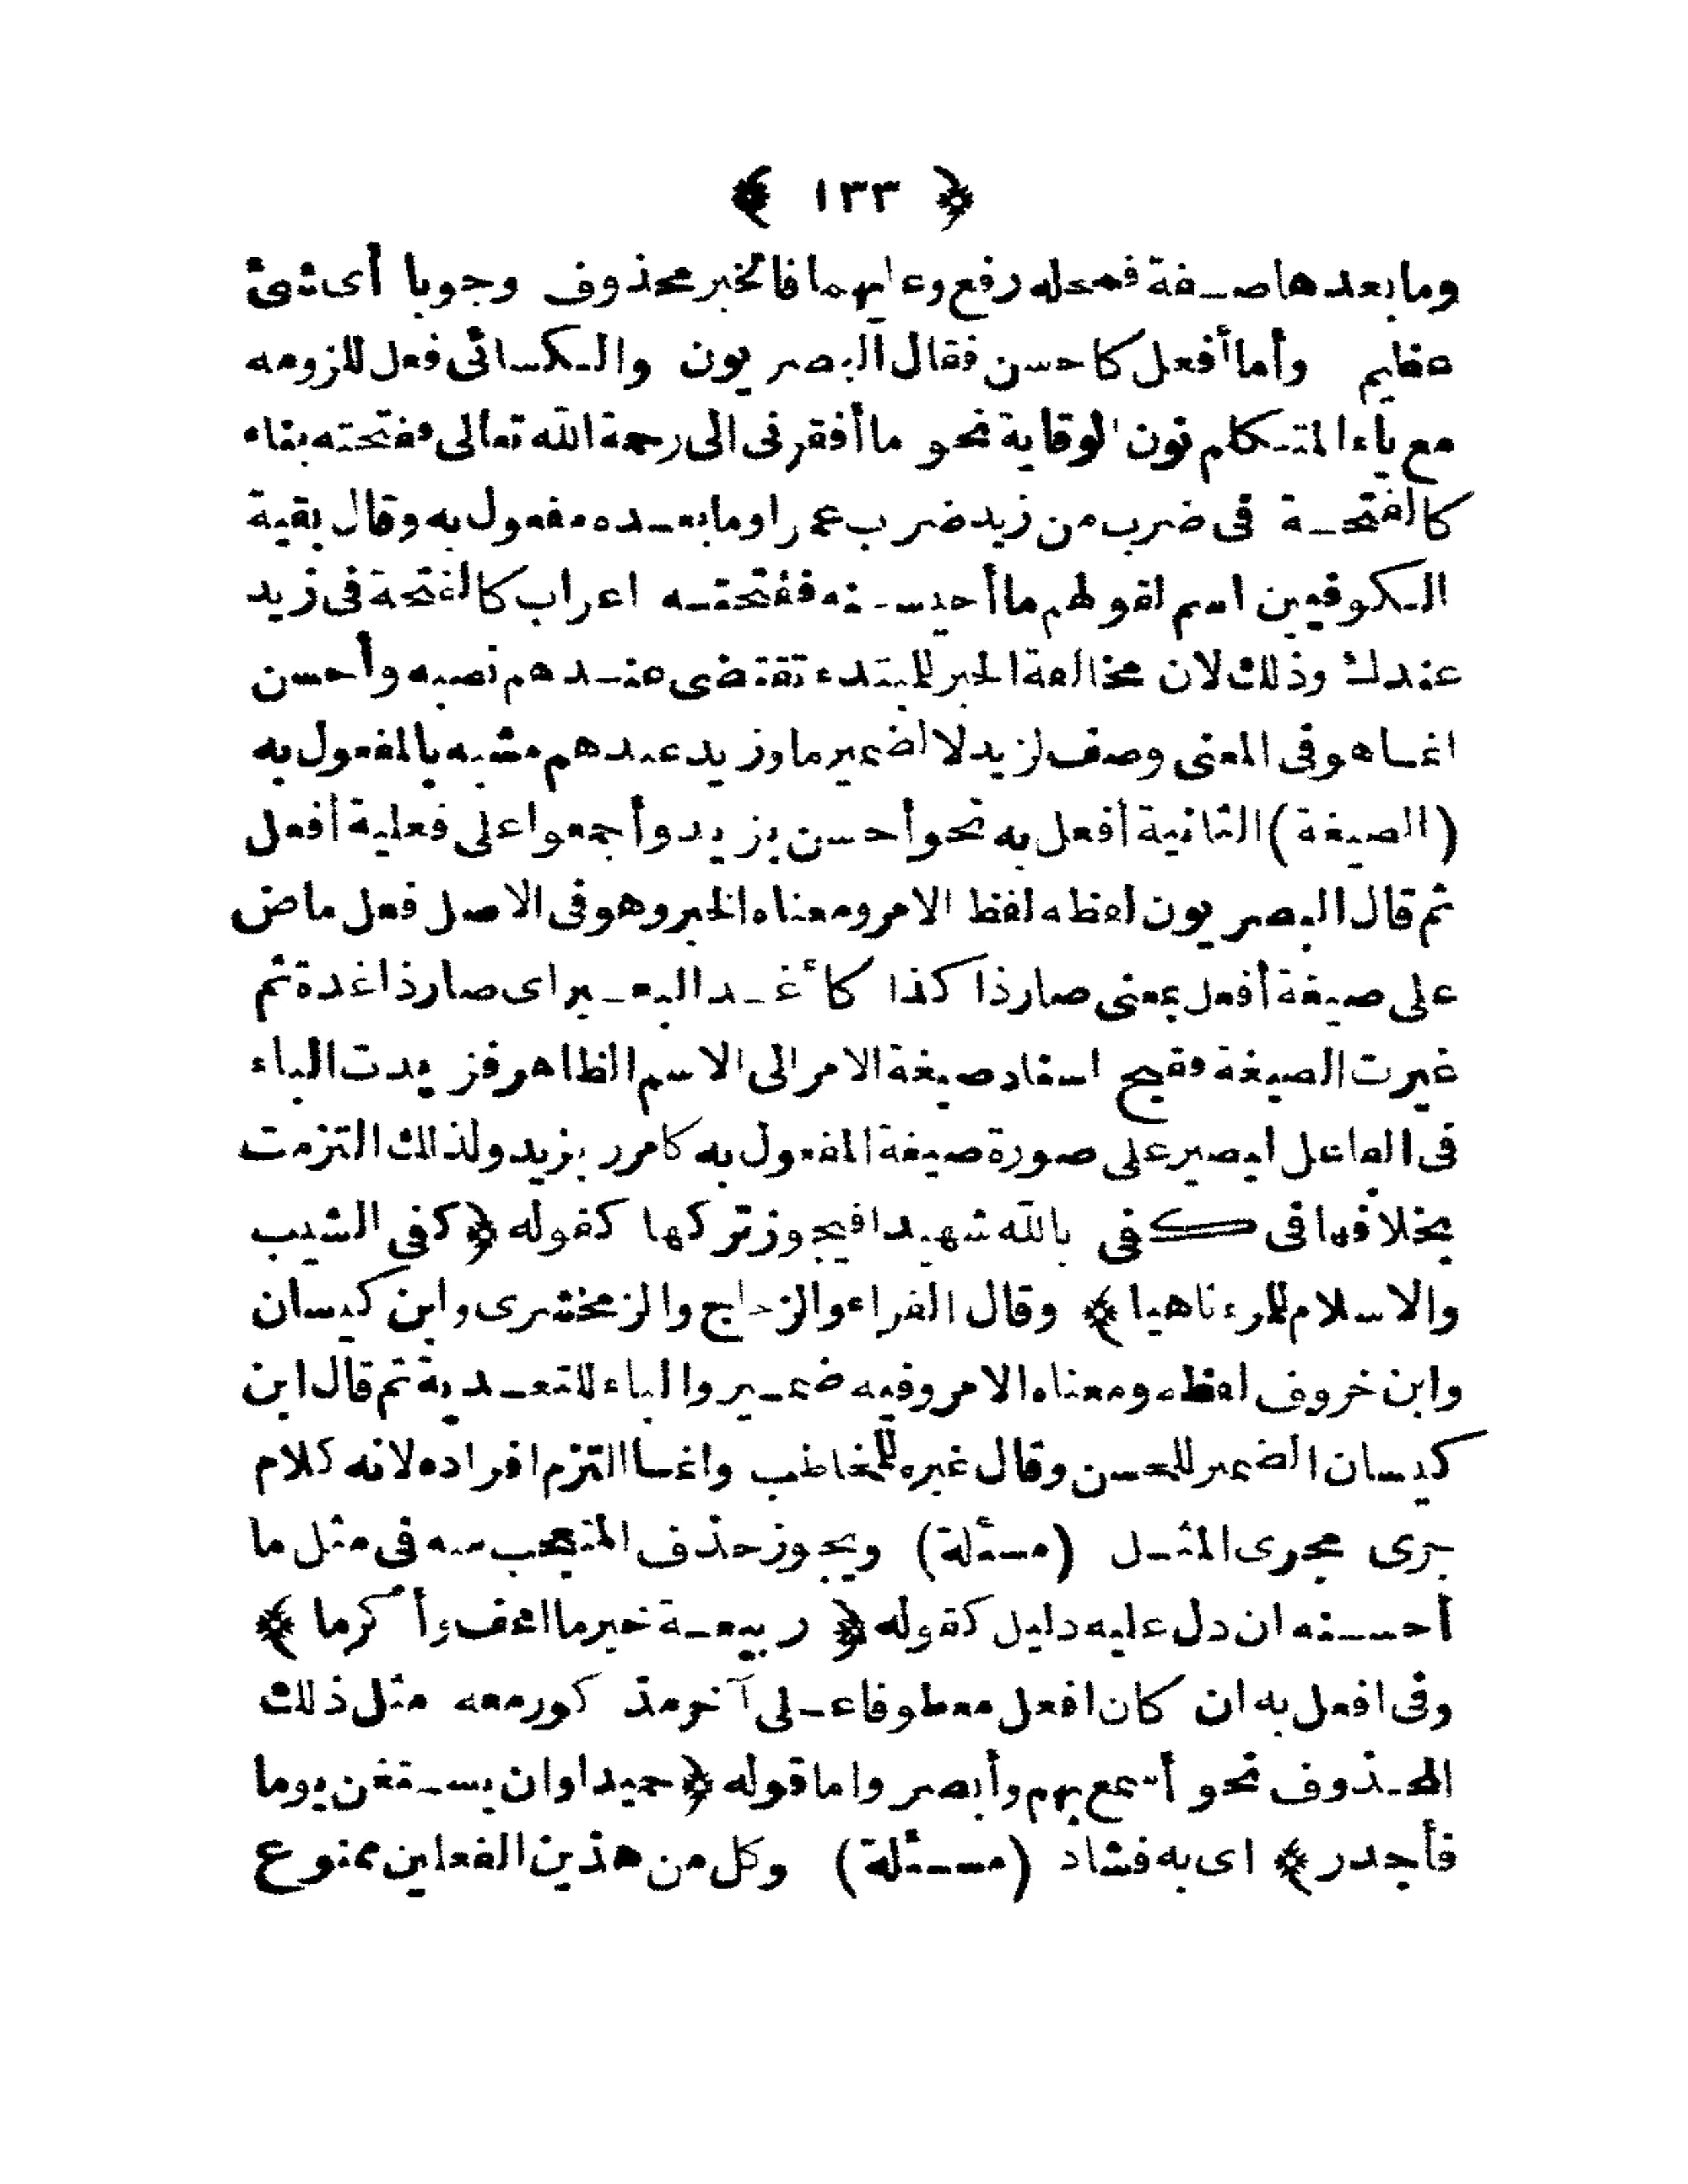 ﴿ ١٣٣ ﴾
وما بعدها صفة فمحله رفع وعليهما فالخبر محذوف وجوبا أى شئ
عظيم وأما أفعل كاحسن فقال البصريون والكسائى فعل للزومه
مع ياء المتكلم نون الوقاية نحو ما أفقرنى الى رحمة الله تعالى ففتحته بناء
كالفتحة فى ضرب من زيد ضرب عمرا وما بعده مفعول به وقال بقية
الكوفيين اسم لقولهم ما أحيسنه ففتحته اعراب كالفتحة فى زيد
عندك وذلك لان مخالفة الخبر للمبتدء تقتضى عندهم نصبه وأحسن
انما هو فى المعنى وصف لزيد لا لضمير ما وزيد عندهم مشبه بالمفعول به
(الصيغة) الثانية أفعل به نحو أحسن بزيد وأجمعوا على فعلية أفعل
ثم قال البصريون لفظه لفظ الامر ومعناه الخبر وهو فى الاصل فعل ماض
على صيغة أفعل بمعنى صار ذا كذا كأغد البعير اى صار ذا غدة ثم
غيرت الصيغة فقبح اسناد صيغة الامر الى الاسم الظاهر فزيدت الباء
فى الفاعل ليصير على صورة صيغة المفعول به كامرر بزيد ولذلك التزمت
بخلافها فى كفى بالله شهيدا فيجوز تركها كقوله ﴿ كفى الشيب
والاسلام للمرء ناهيا ﴾ وقال الفراء والزجاج والزمخشرى وابن كيسان
وابن خروف لفظه ومعناه الامر وفيه ضمير والباء للتعدية ثم قال ابن
كيسان الضمير للحسن وقال غيره للمخاطب وانما التزم افراده لانه كلام
جرى مجرى المثل (مسئلة) ويجوز حذف المتعجب منه فى مثل ما
أحسنه ان دل عليه دليل كقوله ﴿ ربيعة خير ما اعف وأكرما ﴾
وفى افعل به ان كان افعل معطوفا على آخر مذكور معه مثل ذلك
المحذوف نحو أسمع بهم وأبصر واما قوله ﴿ حميدا وان يستغن يوما
فأجدر ﴾ اى به فشاد (مسئلة) وكل من هذين الفعلين ممنوع